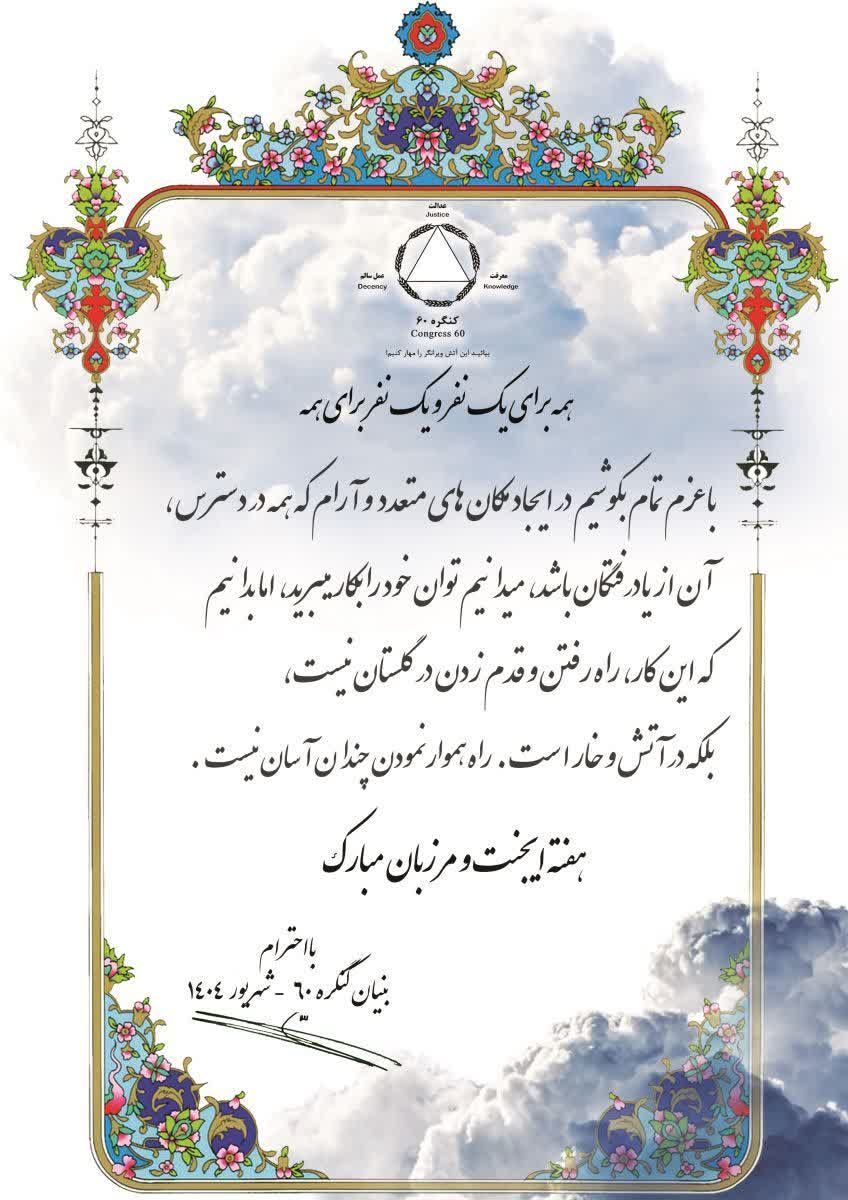 عدالت
Justice
عمل سالم
معرفت
Decency
Knowledge
کنگره ۶۰
Congress 60
بیائید این آتش ویرانگر را مهار کنیم!
همه برای یک نفر و یک نفر برای همه
با عزم تمام بکوشیم در ایجاد مکان های متعدد و آرام که همه در دسترس،
آن از یاد رفتگان باشد، میدانیم توان خود را بکار میبرید، اما بدانیم
که این کار، راه رفتن و قدم زدن در گلستان نیست،
بلکه در آتش و خار است. راه هموار نمودن چندان آسان نیست.
هفته ایجنت و مرزبان مبارک
با احترام
بنیان کنگره ۶۰ - شهریور ۱۴۰۴